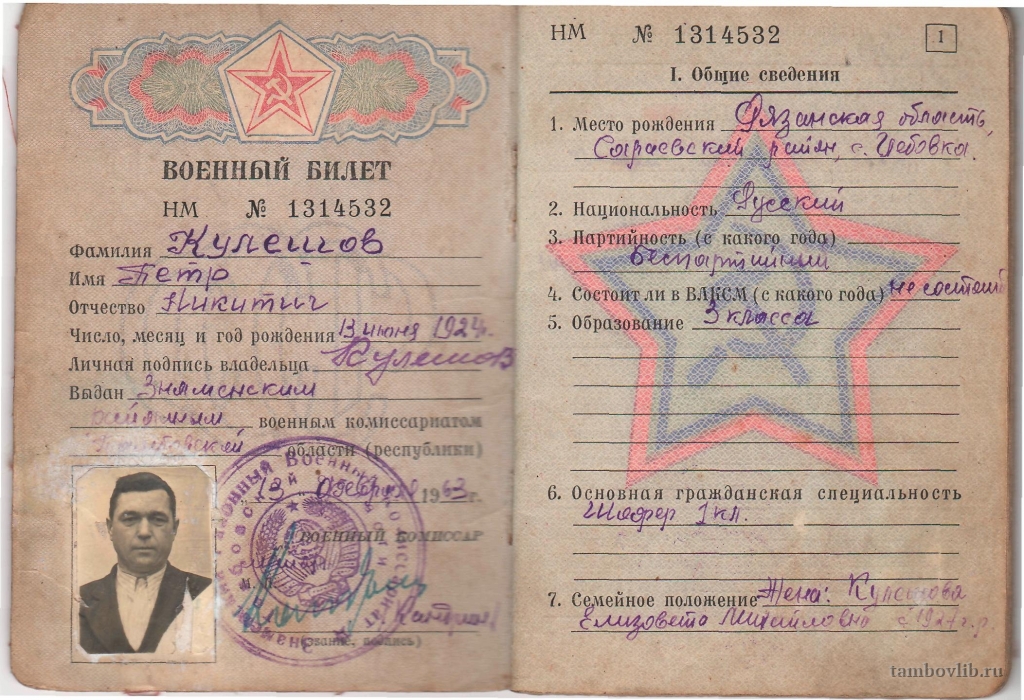 ВОЕННЫЙ БИЛЕТ
НМ № 1314532
Фамилия Кулешов
Имя Петр
Отчество Никитич
Число, месяц и год рождения 13 июня 1924г.
Личная подпись владельца Кулешов
Выдан Знаменским
районным военным комиссариатом
Тамбовской области (республики)
"13" февраля 1963г.
ВОЕННЫЙ КОМИССАР
(звание, подпись)
НМ № 1314532 1
I. Общие сведения
1. Место рождения Рязанская область,
Сараевский район, с.
2. Национальность Русский
3. Партийность (с какого года)
беспартийный
4. Состоит ли в ВЛКСМ (с какого года) не состоит
5. Образование 3 класса
6. Основная гражданская специальность
Шофер 1 кл.
7. Семейное положение Жена: Кулешова
Елизовета Михайловна с 1927 г.р.
tambovlib.ru